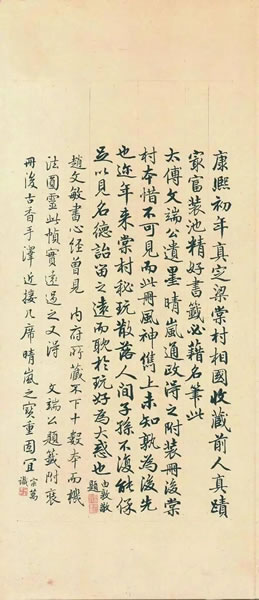 康熙初年真定梁棠村相國收藏前人真蹟
家富装池精好書籤必藉名筆此
太傅文端公遺墨晴嵐通政得之附裝冊後棠
村本惜不可見而此冊風神儁上未知孰為後先
也迩年来棠村秘玩散落人間子孫不復能保
足以見名德詒留之遠而耽於玩好為大惑也由敦敬題
趙文敏書心經曾見 内府所藏不下十數本而機
法圓靈此幀實遠過之又得 文端公題籤附裝
冊後古香手澤近接几席晴嵐之寶重固宜宗萬識